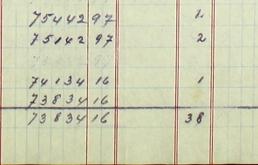 75442 97 2
75142 97 2
74134 16 1
73834 16
73834 16 38